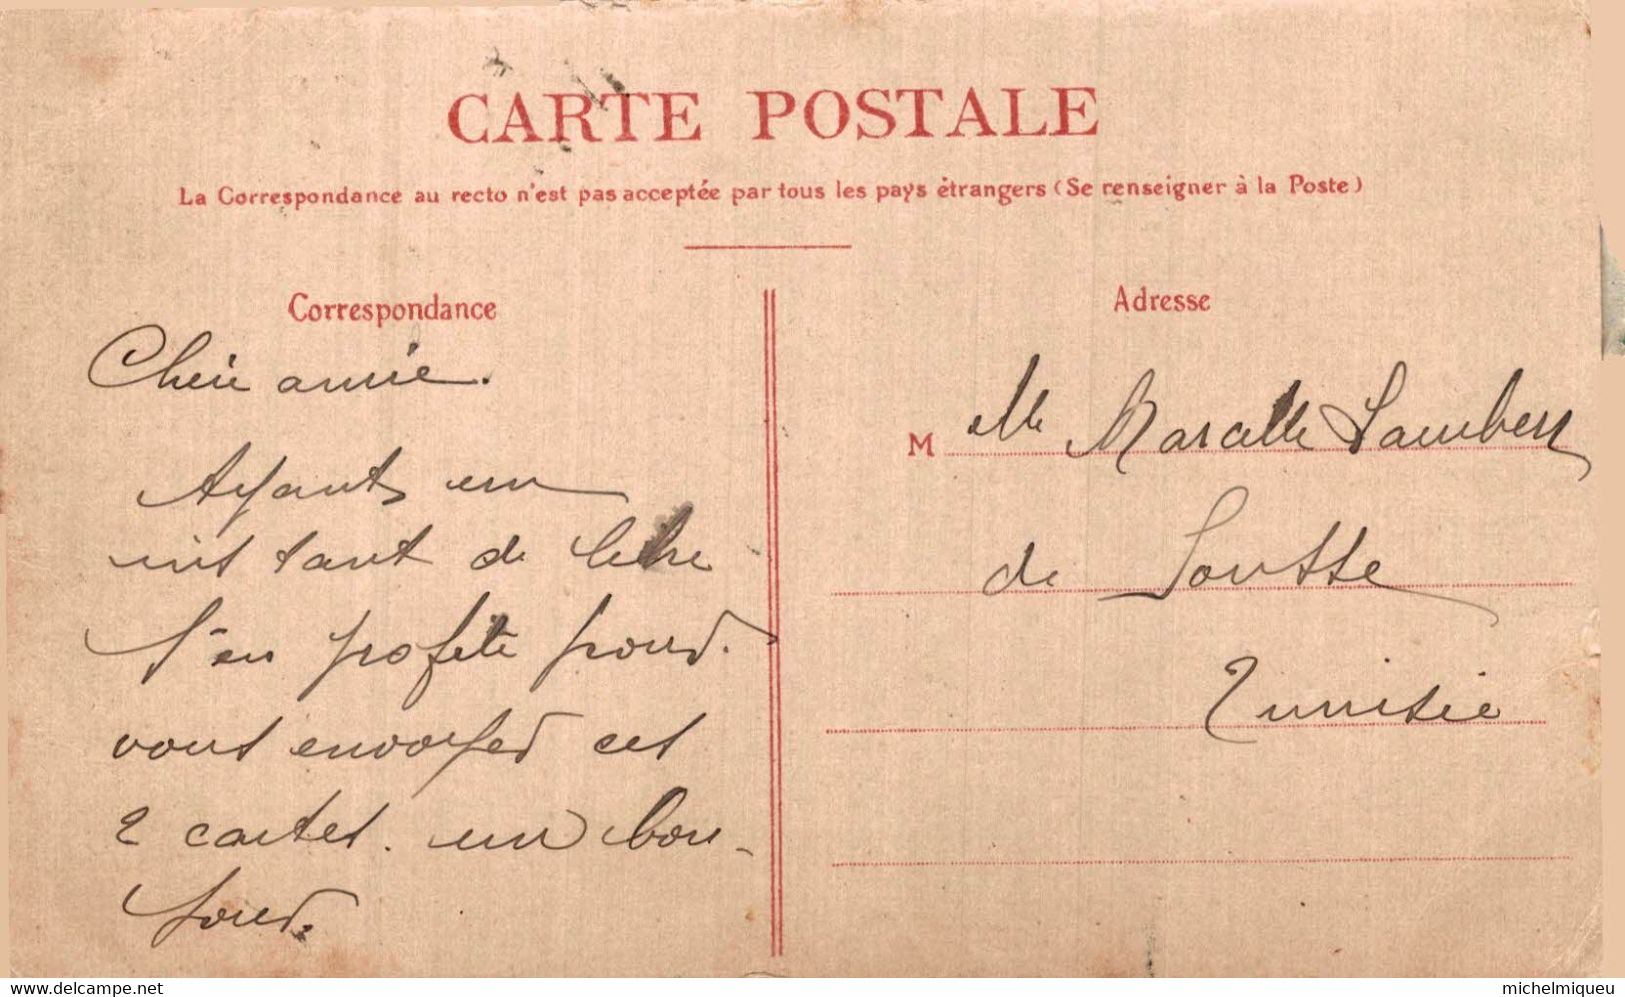 CARTE POSTALE
La Correspondance au recto n'est pas acceptée par tous les pays étrangers (Se renseigner à la Poste)
Correspondance
Chèie amie.
Ayants un
instant de libre
J'en profite pour
vous envoyer ces
2 cartes. un bon-
jour.
Adresse
M Mlle Marcelle Lambert
de Sousse
Tunisie
www.delcampe.net
michelmiqueu